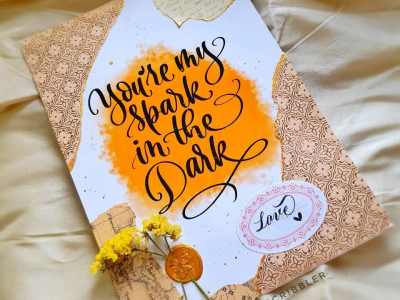 You're my
spark
in the
Dark
Love
SCRIBBLER